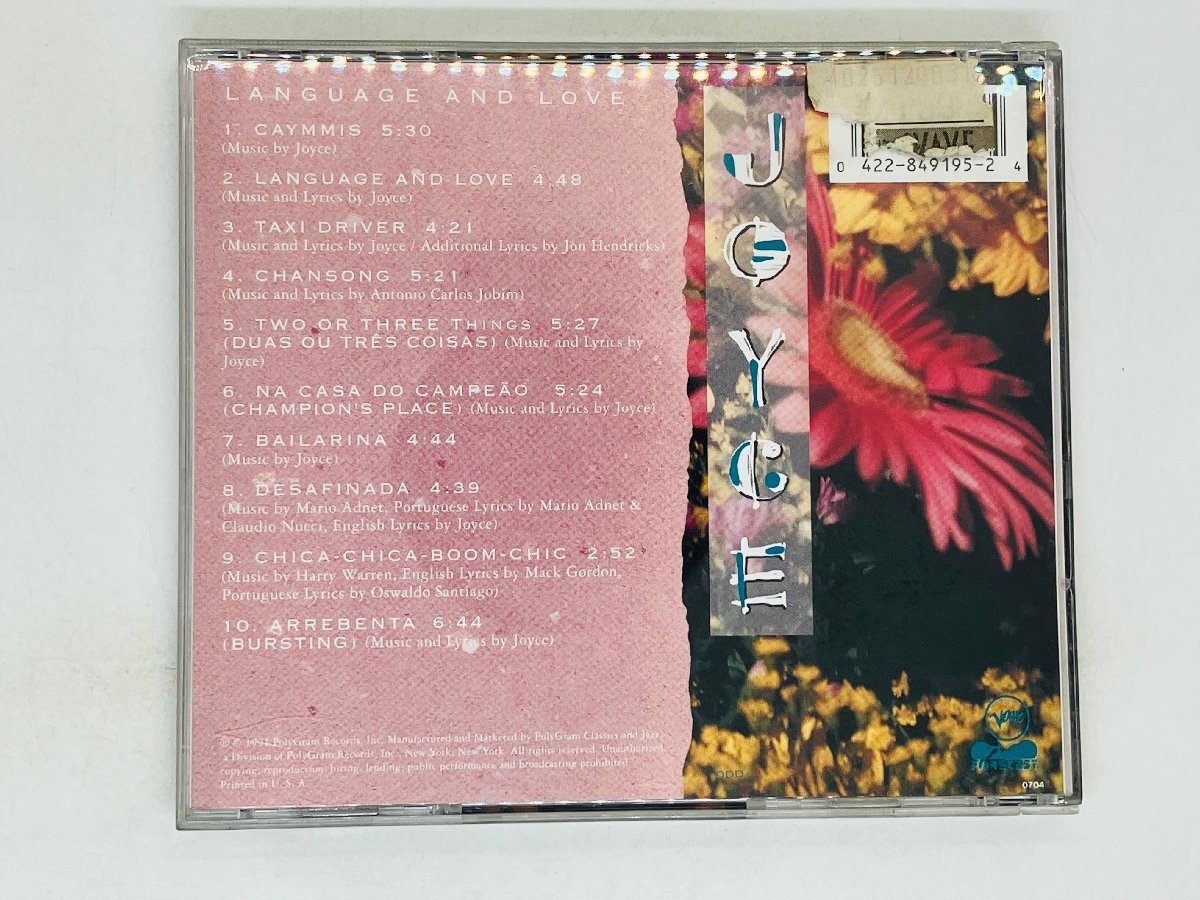 LANGUAGE AND LOVE
1. CAYMMIS 5:30
(Music by Joyce)
2. LANGUAGE AND LOVE 4:48
(Music and Lyrics by Joyce)
3. TAXI DRIVER 4:21
(Music and Lyrics by Joyce / Additional Lyrics by Jon Hendricks)
4. CHANSONG 5:21
(Music and Lyrics by Antonio Carlos Jobim)
5. TWO OR THREE THINGS 5:27
(DUAS OU TRÊS COISAS) (Music and Lyrics by
Joyce)
6. NA CASA DO CAMPEÃO 5:24
(CHAMPION'S PLACE) (Music and Lyrics by Joyce)
7. BAILARINA 4:44
(Music by Joyce)
8. DESAFINADA 4:39
(Music by Mario Adnet, Portuguese Lyrics by Mario Adnet &
Claudio Nucci, English Lyrics by Joyce)
9. CHICA-CHICA-BOOM-CHIC 2:52
(Music by Harry Warren, English Lyrics by Mack Gordon,
Portuguese Lyrics by Oswaldo Santiago)
10. ARREBENTA 6:44
(BURSTING) (Music and Lyrics by Joyce)
℗ © 1991 PolyGram Records, Inc. Manufactured and Marketed by PolyGram Classics and Jazz,
a Division of PolyGram Records, Inc., New York, New York. All rights reserved. Unauthorized
copying, reproduction, hiring, lending, public performance and broadcasting prohibited.
Printed in U.S.A.
JOYCE
WAVE
0 422-849195-2 4
DDD
VERVE
FORECAST
0704